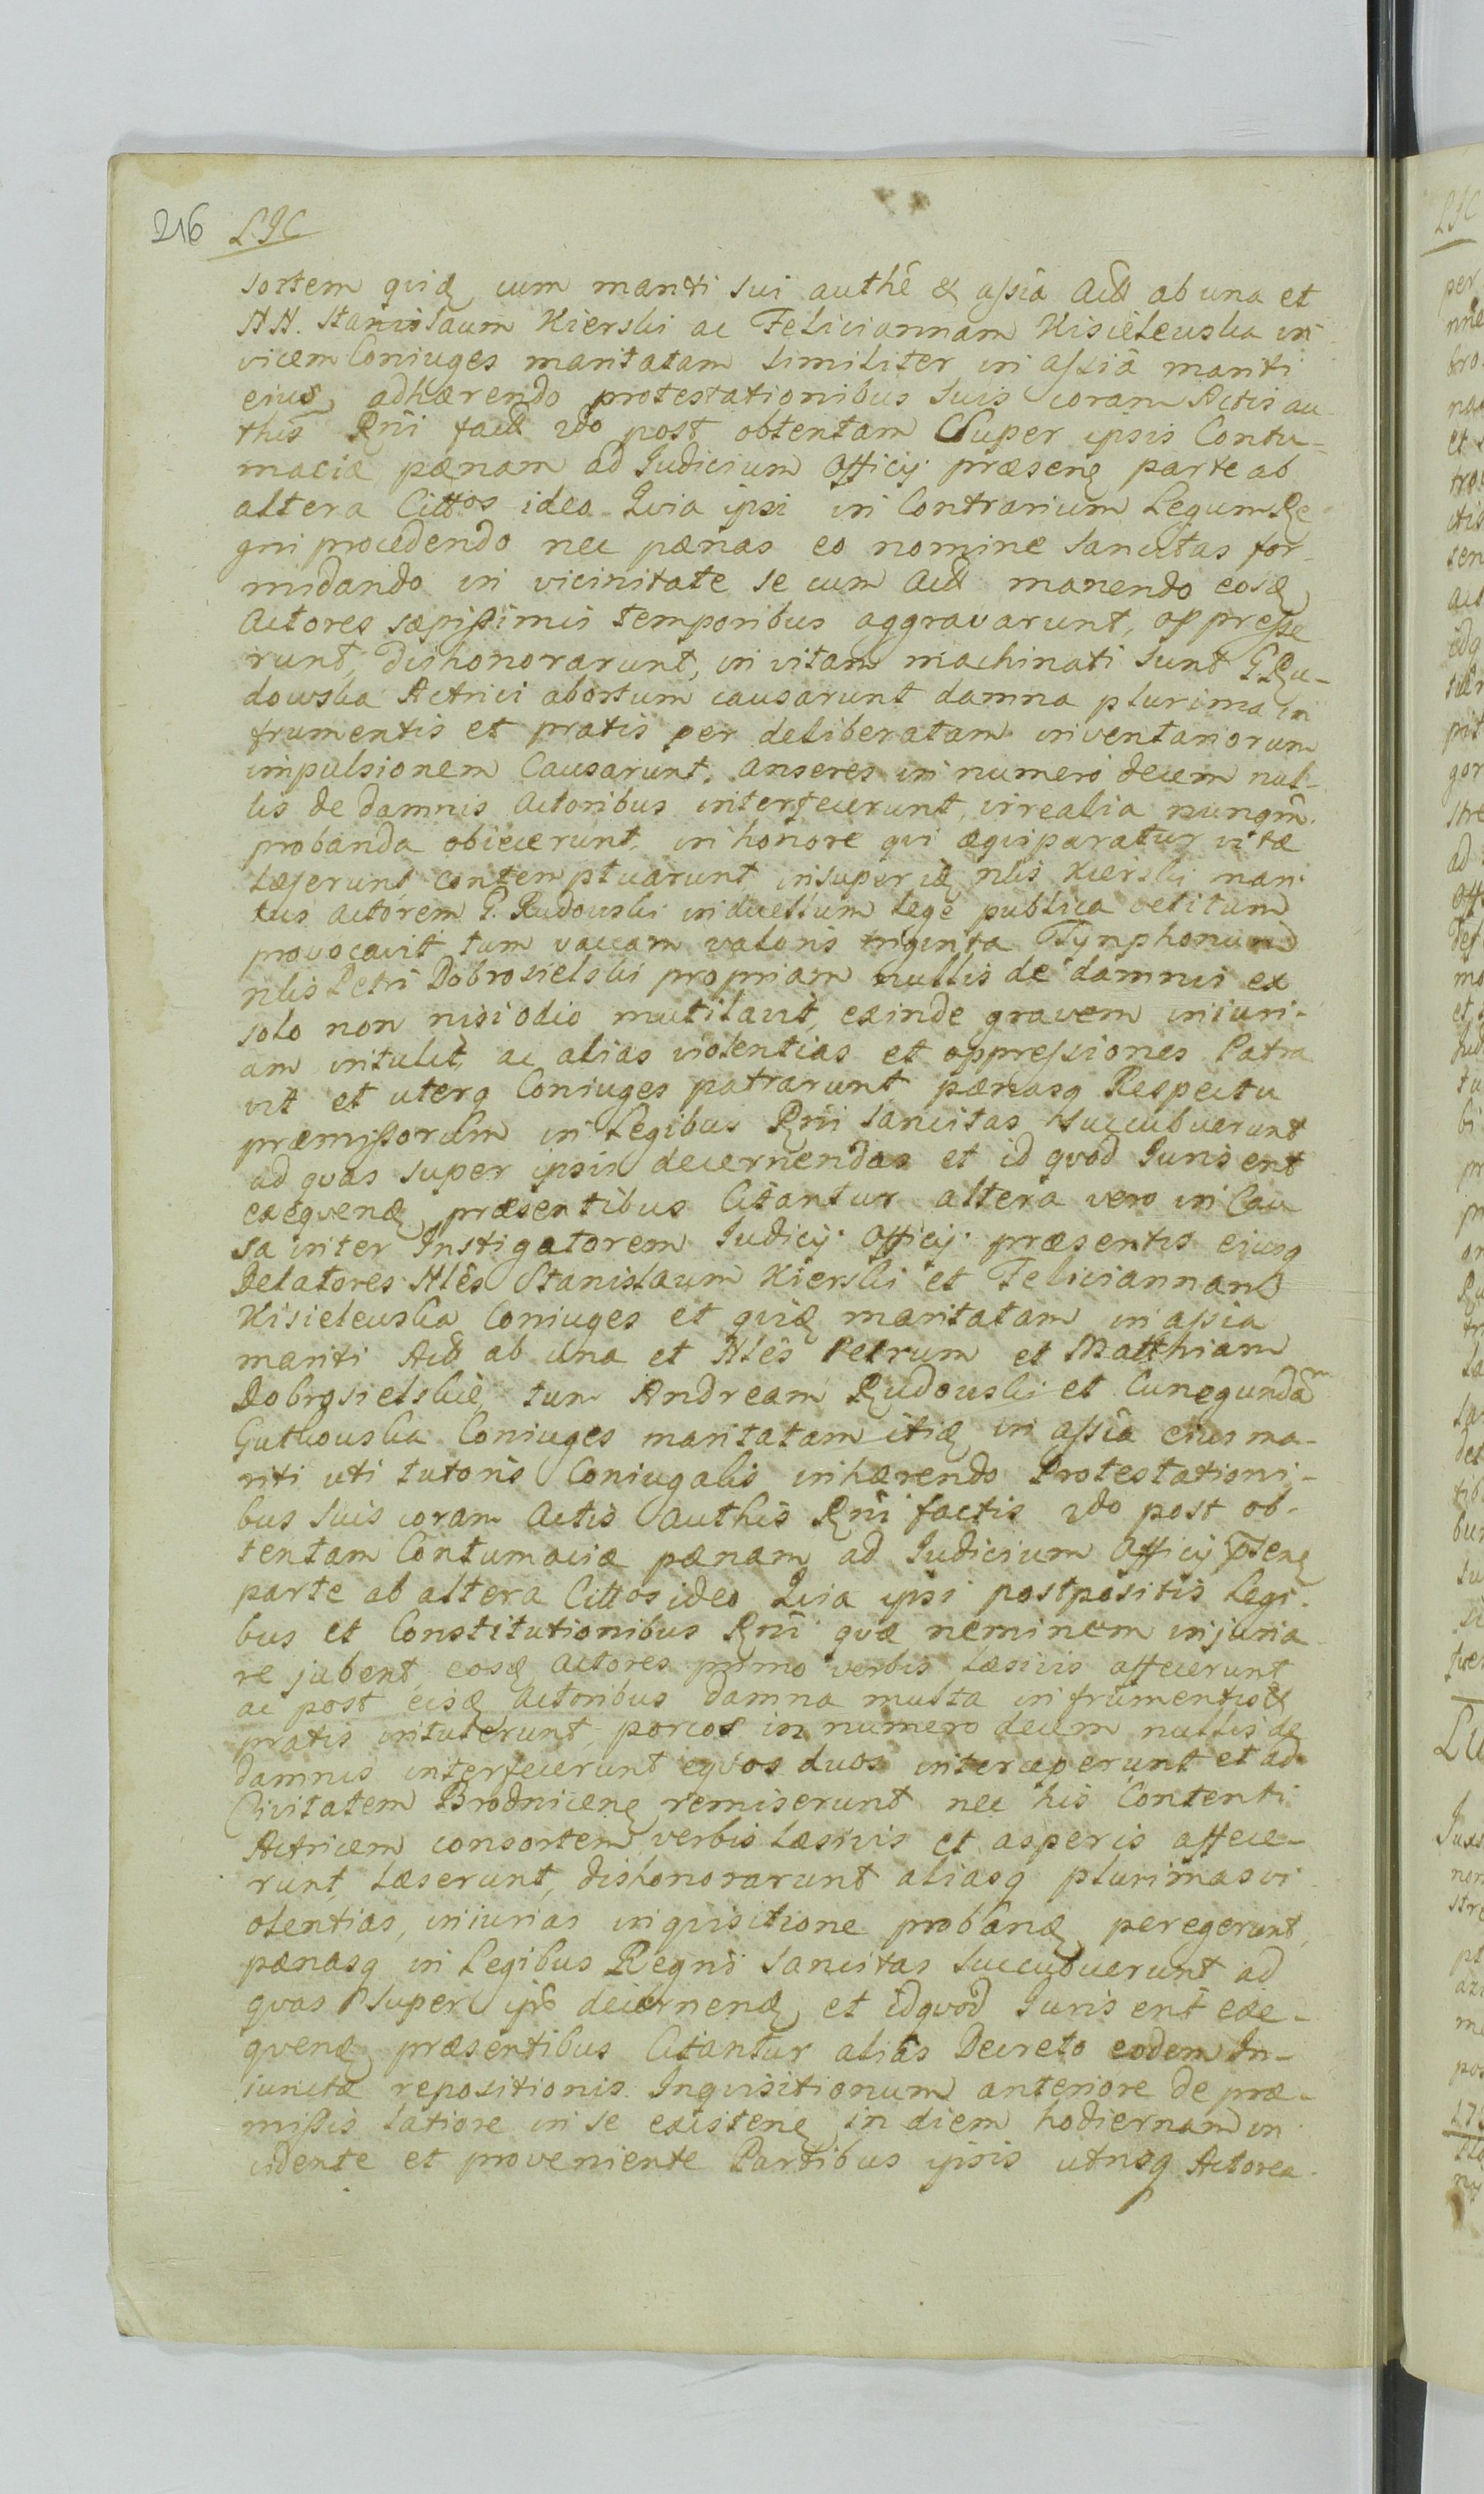 216 LJC
sortem quid cum mariti sui authê & assîa Actt ab una et
NN. Stanislaum Kierski ac Feliciannam Kisielewska in
vicem Coniuges maritatam similiter in assiâ mariti
eius, adhærendo protestationibus suis coram Actis au
this Rni factt 2do post obtentam Super ipsis Contu-
maciæ pænam ad Iudicium Officij præsens parte ab
altera Cittos ideo Quia ipsi in Contrarium Legum Re
gni procedendo nec pænas eo nomine sancitas for-
midando in vicinitate se cum Actt manendo eosd
Actores sæpissimis temporibus aggravarunt, oppresse
runt, dishonorarunt, in vitam machinati sunt G. Ru-
dowska Actrici abortum causarunt damna plurima in
frumentis et pratis per deliberatam inventariorum
impulsionem Causarunt. anseres in numero decem nul-
lis de damnis Actoribus interfecerunt, irrealia nunqm
probanda obiecerunt, in honore qui æquiparatur vitæ
Læserunt contemptuarunt insuper id nlis Kierski mari
tus Actorem G. Rudowski in duellum lege publica vetitum
provocavit tum vaccam valoris triginta Tynphonum
nlis Petri Dobrosielski propriam nullis de damnis ex
solo non nisi odio mutilavit, exinde gravem iniuri-
am intulit, ac alias violentias et oppressiones Patra
vit et uterq Coniuges patrarunt pænasq Respectu
præmissorum in Legibus Rni sancitas succubuerunt
ad quas super ipsis decernendas et id quod Iuris erit
exequend præsentibus Citantur altera vero in Cau
sa inter Instigatorem Iudicij Officij præsentis eiusq
Delatores Nlês Stanislaum Kierski et Feliciannam
Kisielewska Coniuges et quid maritatam in assia
mariti Actt ab una et Nlês Petrum et Matthiam
Dobrosielskie tum Andream Rudowski et Cunegundam
Gutkowska Coniuges maritatam itid in assîa eius ma-
riti uti tutoris Coniugalis inhærendo Protestationi-
bus suis coram Actis authis Rni factis 2do post ob-
tentam Contumaciæ pænam ad Iudicium Officij psens
parte ab altera Cittos ideo Quia ipsi postpositis Legi-
bus et Constitutionibus Rni quæ neminem injuria
re jubent eosd Actores primo verbis Læsivis affecerunt
ac post eisd Actoribus damna multa in frumentis &
pratis intulerunt, porcos in numero decem nullis de
damnis interfecerunt eqvos duos interceperunt et ad
Civitatem Brodnicens remiserunt nec his Contenti
Actricem consortem verbis Læsivis et asperis affece-
runt, læserunt, dishonorarunt aliasq plurimas vi
olentias, iniurias inquisitione proband peregerunt,
pænasq in Legibus Regni sancitas succubuerunt ad
quas super ipis decernend et id quod Iuris erit exe-
quend præsentibus Citantur alias Decreto eodem In-
iunctæ repositionis Inquisitionum anteriore de præ-
missis latiore in se existens in diem hodiernam in
cidente et proveniente Partibus ipsis utrisq Actorea